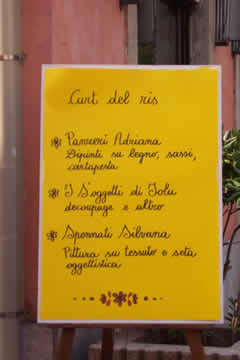 L'art del ris
Panieri Adriana
Dipinti su legno, sassi,
cartapesta
I S'oggetti di Iolu
decoupage e altro
Spennati Silvana
Pittura su tessuto e seta
oggettistica